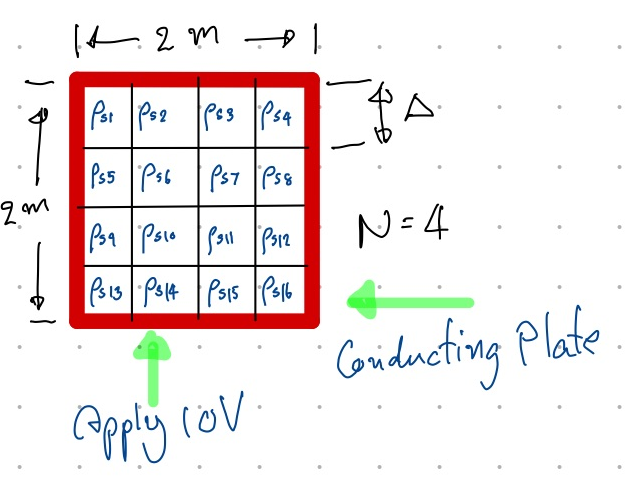 2 m
ρs1 ρs2 ρs3 ρs4
Δ
ρs5 ρs6 ρs7 ρs8
2 m
ρs9 ρs10 ρs11 ρs12
N = 4
ρs13 ρs14 ρs15 ρs16
Conducting Plate
Apply 10V